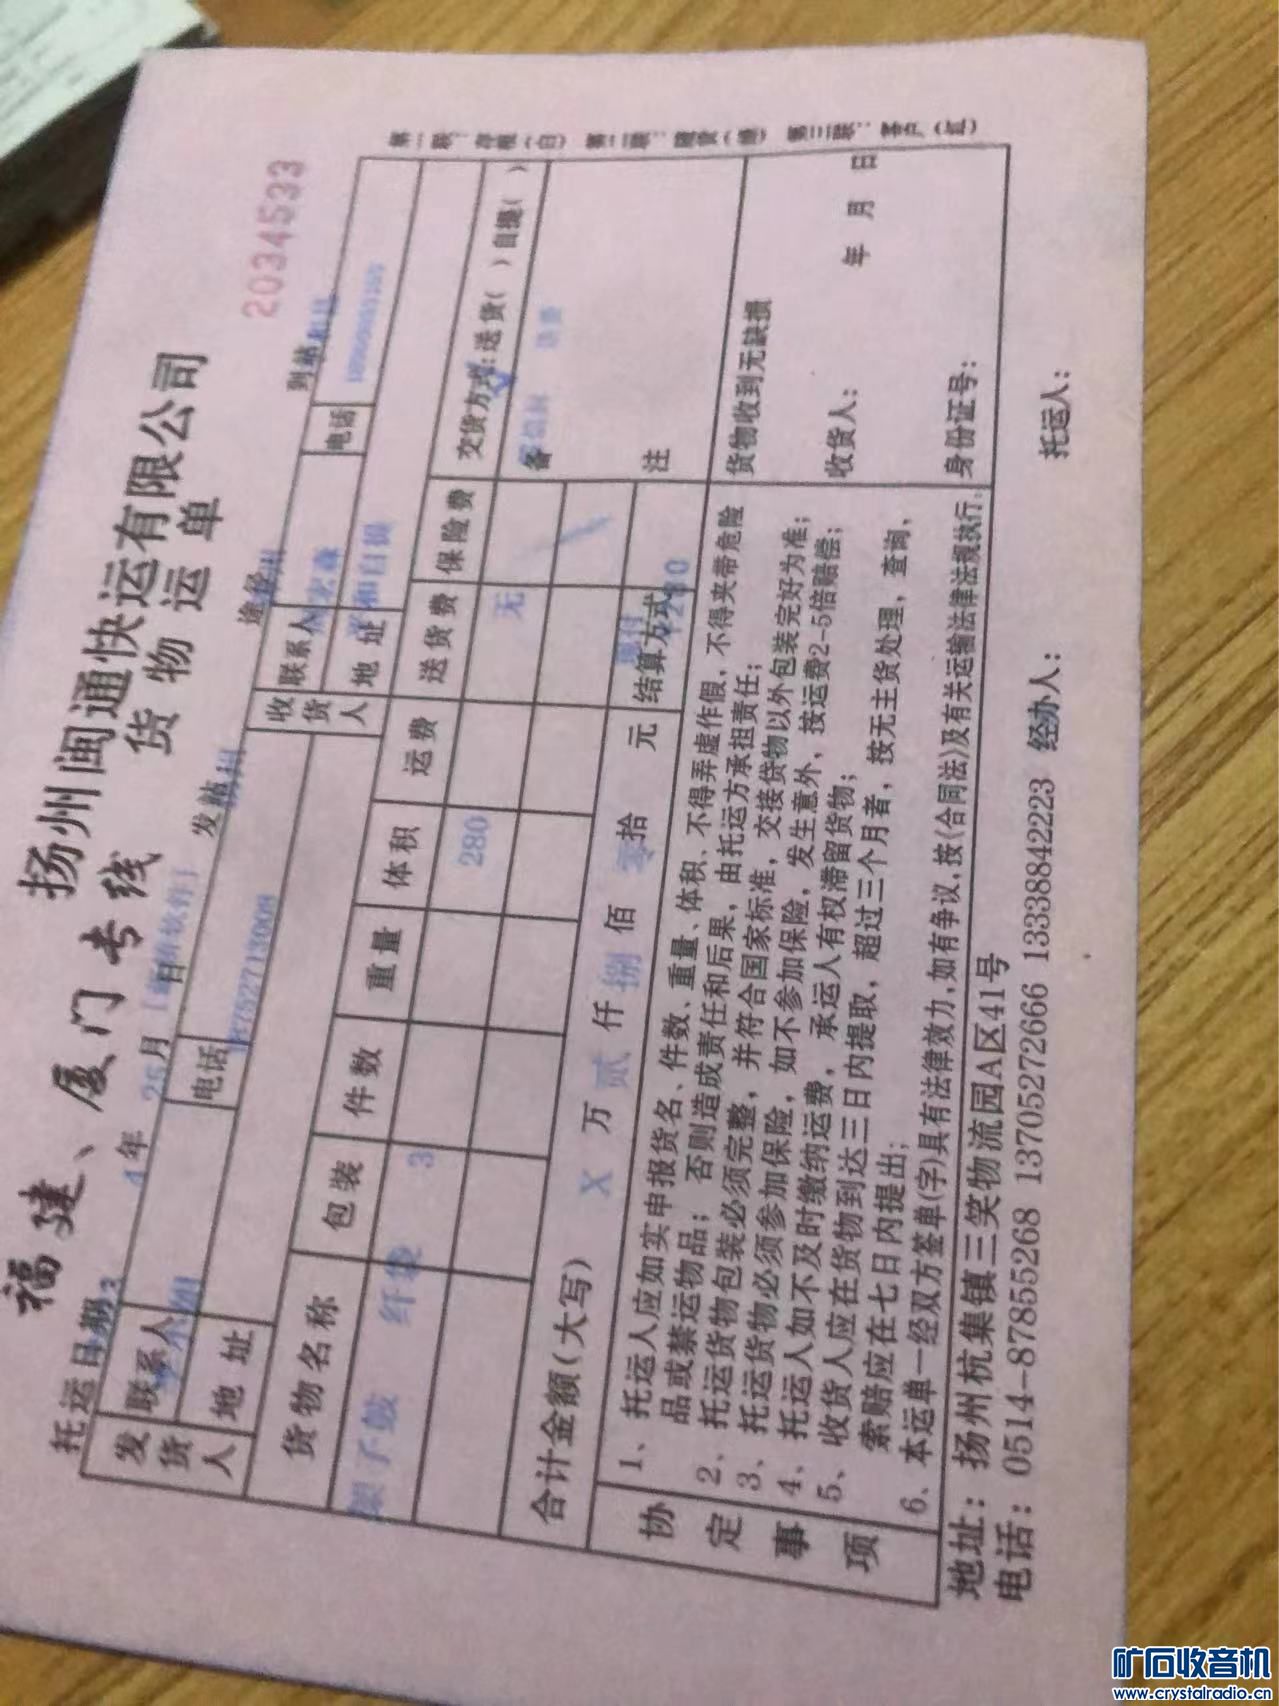 福建、厦门专线
扬州闽通快运有限公司
货物运单
2034533
托运日期 3 4年 25月 日 发站 途径 到站
发货人 联系人 电话
地址
收货人 联系人 电话
地址 自提
货物名称 包装 件数 重量 体积 运费 送货费 保险费 交货方式:送货( )自提( )
3 280 无
合计金额(大写) X 万 贰 仟 捌 佰 零 拾 元 结算方式
备注
协定事项
1、托运人应如实申报货名、件数、重量、体积、不得弄虚作假,不得夹带危险
品或禁运物品;否则造成责任和后果,由托运方承担责任;
2、托运货物包装必须完整,并符合国家标准,交接货物以外包装完好为准;
3、托运货物必须参加保险,如不参加保险,发生意外,按运费2-5倍赔偿;
4、托运人如不及时缴纳运费,承运人有权滞留货物;
5、收货人应在货物到达三日内提取,超过三个月者,按无主货处理,查询,
索赔应在七日内提出;
6、本运单一经双方签单(字)具有法律效力,如有争议,按(合同法)及有关运输法律法规执行.
货物收到无缺损
收货人:
年 月 日
身份证号:
地址:扬州杭集镇三笑物流园A区41号
电话:0514-87855268 13705272666 13338842223 经办人: 托运人:
第一联:存根(白) 第二联:随货 第三联:客户(红)
矿石收音机
www.crystalradio.cn